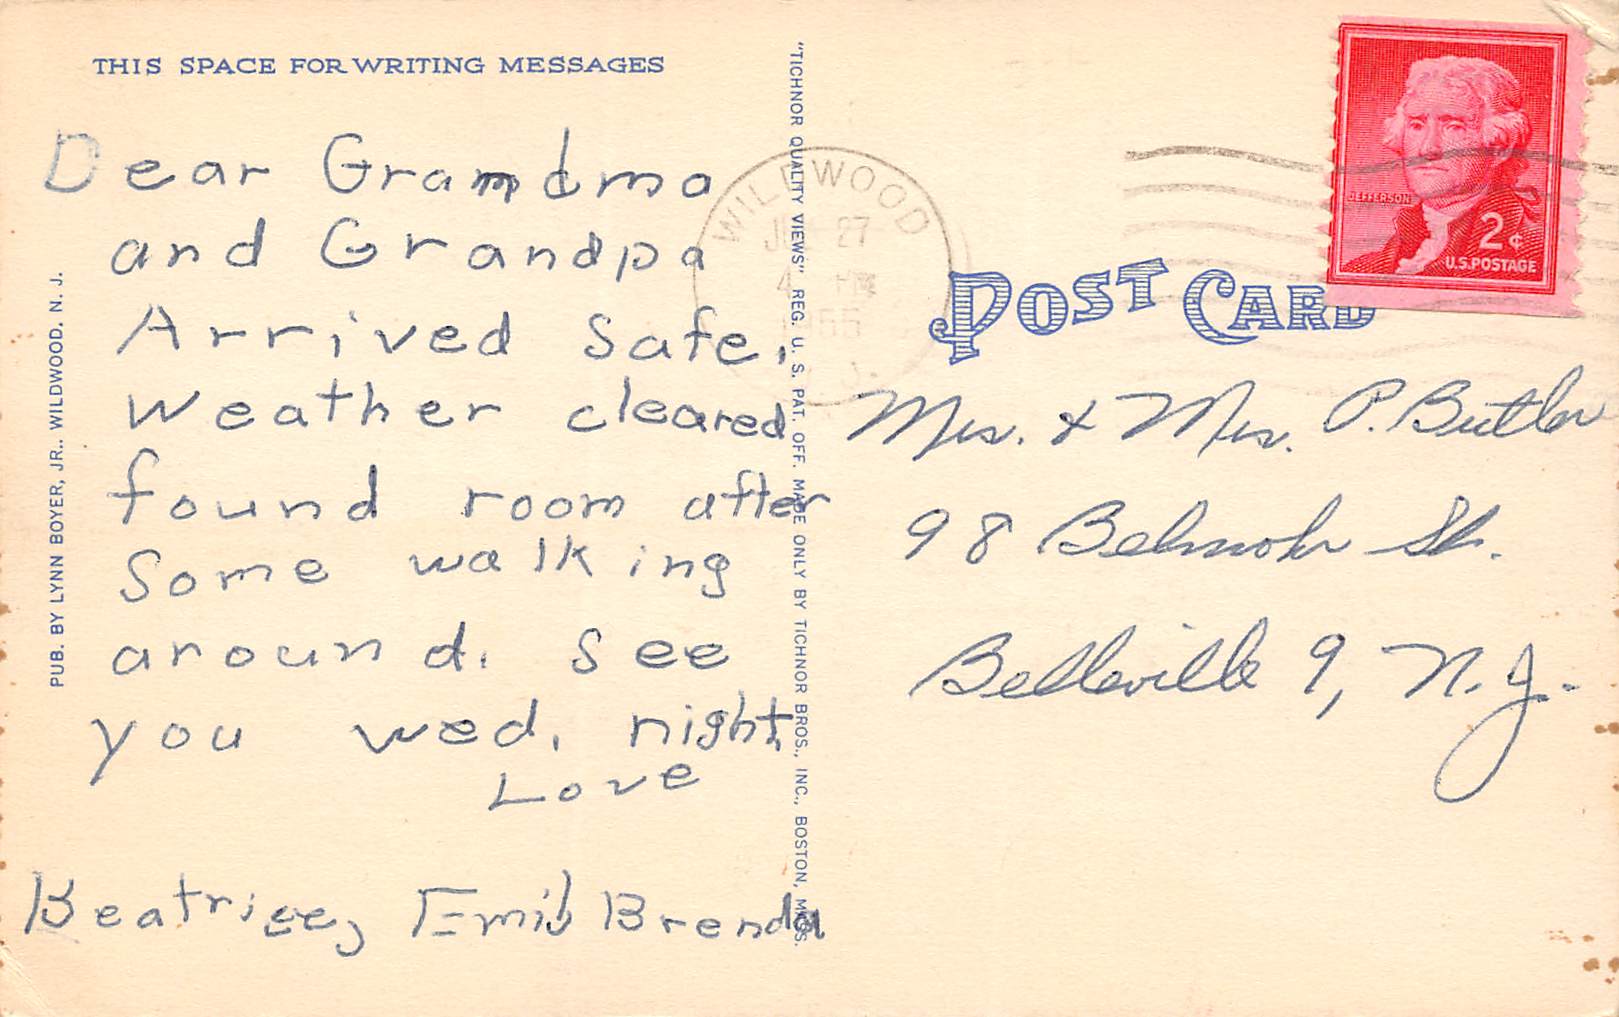 THIS SPACE FOR WRITING MESSAGES
Dear Grandma
and Grandpa
Arrived safe.
Weather cleared
found room after
some walking
around. See
you wed. night.
Love
Beatrice, Emil Brenda
PUB. BY LYNN BOYER, JR., WILDWOOD, N. J.
"TICHNOR QUALITY VIEWS" REG. U. S. PAT. OFF. MADE ONLY BY TICHNOR BROS., INC., BOSTON, MASS.
WILDWOOD
27
PM
POST CARD
JEFFERSON
2¢
U.S. POSTAGE
Mrs. & Mrs. P. Butler
98 Belmohr St.
Belleville 9, N.J.